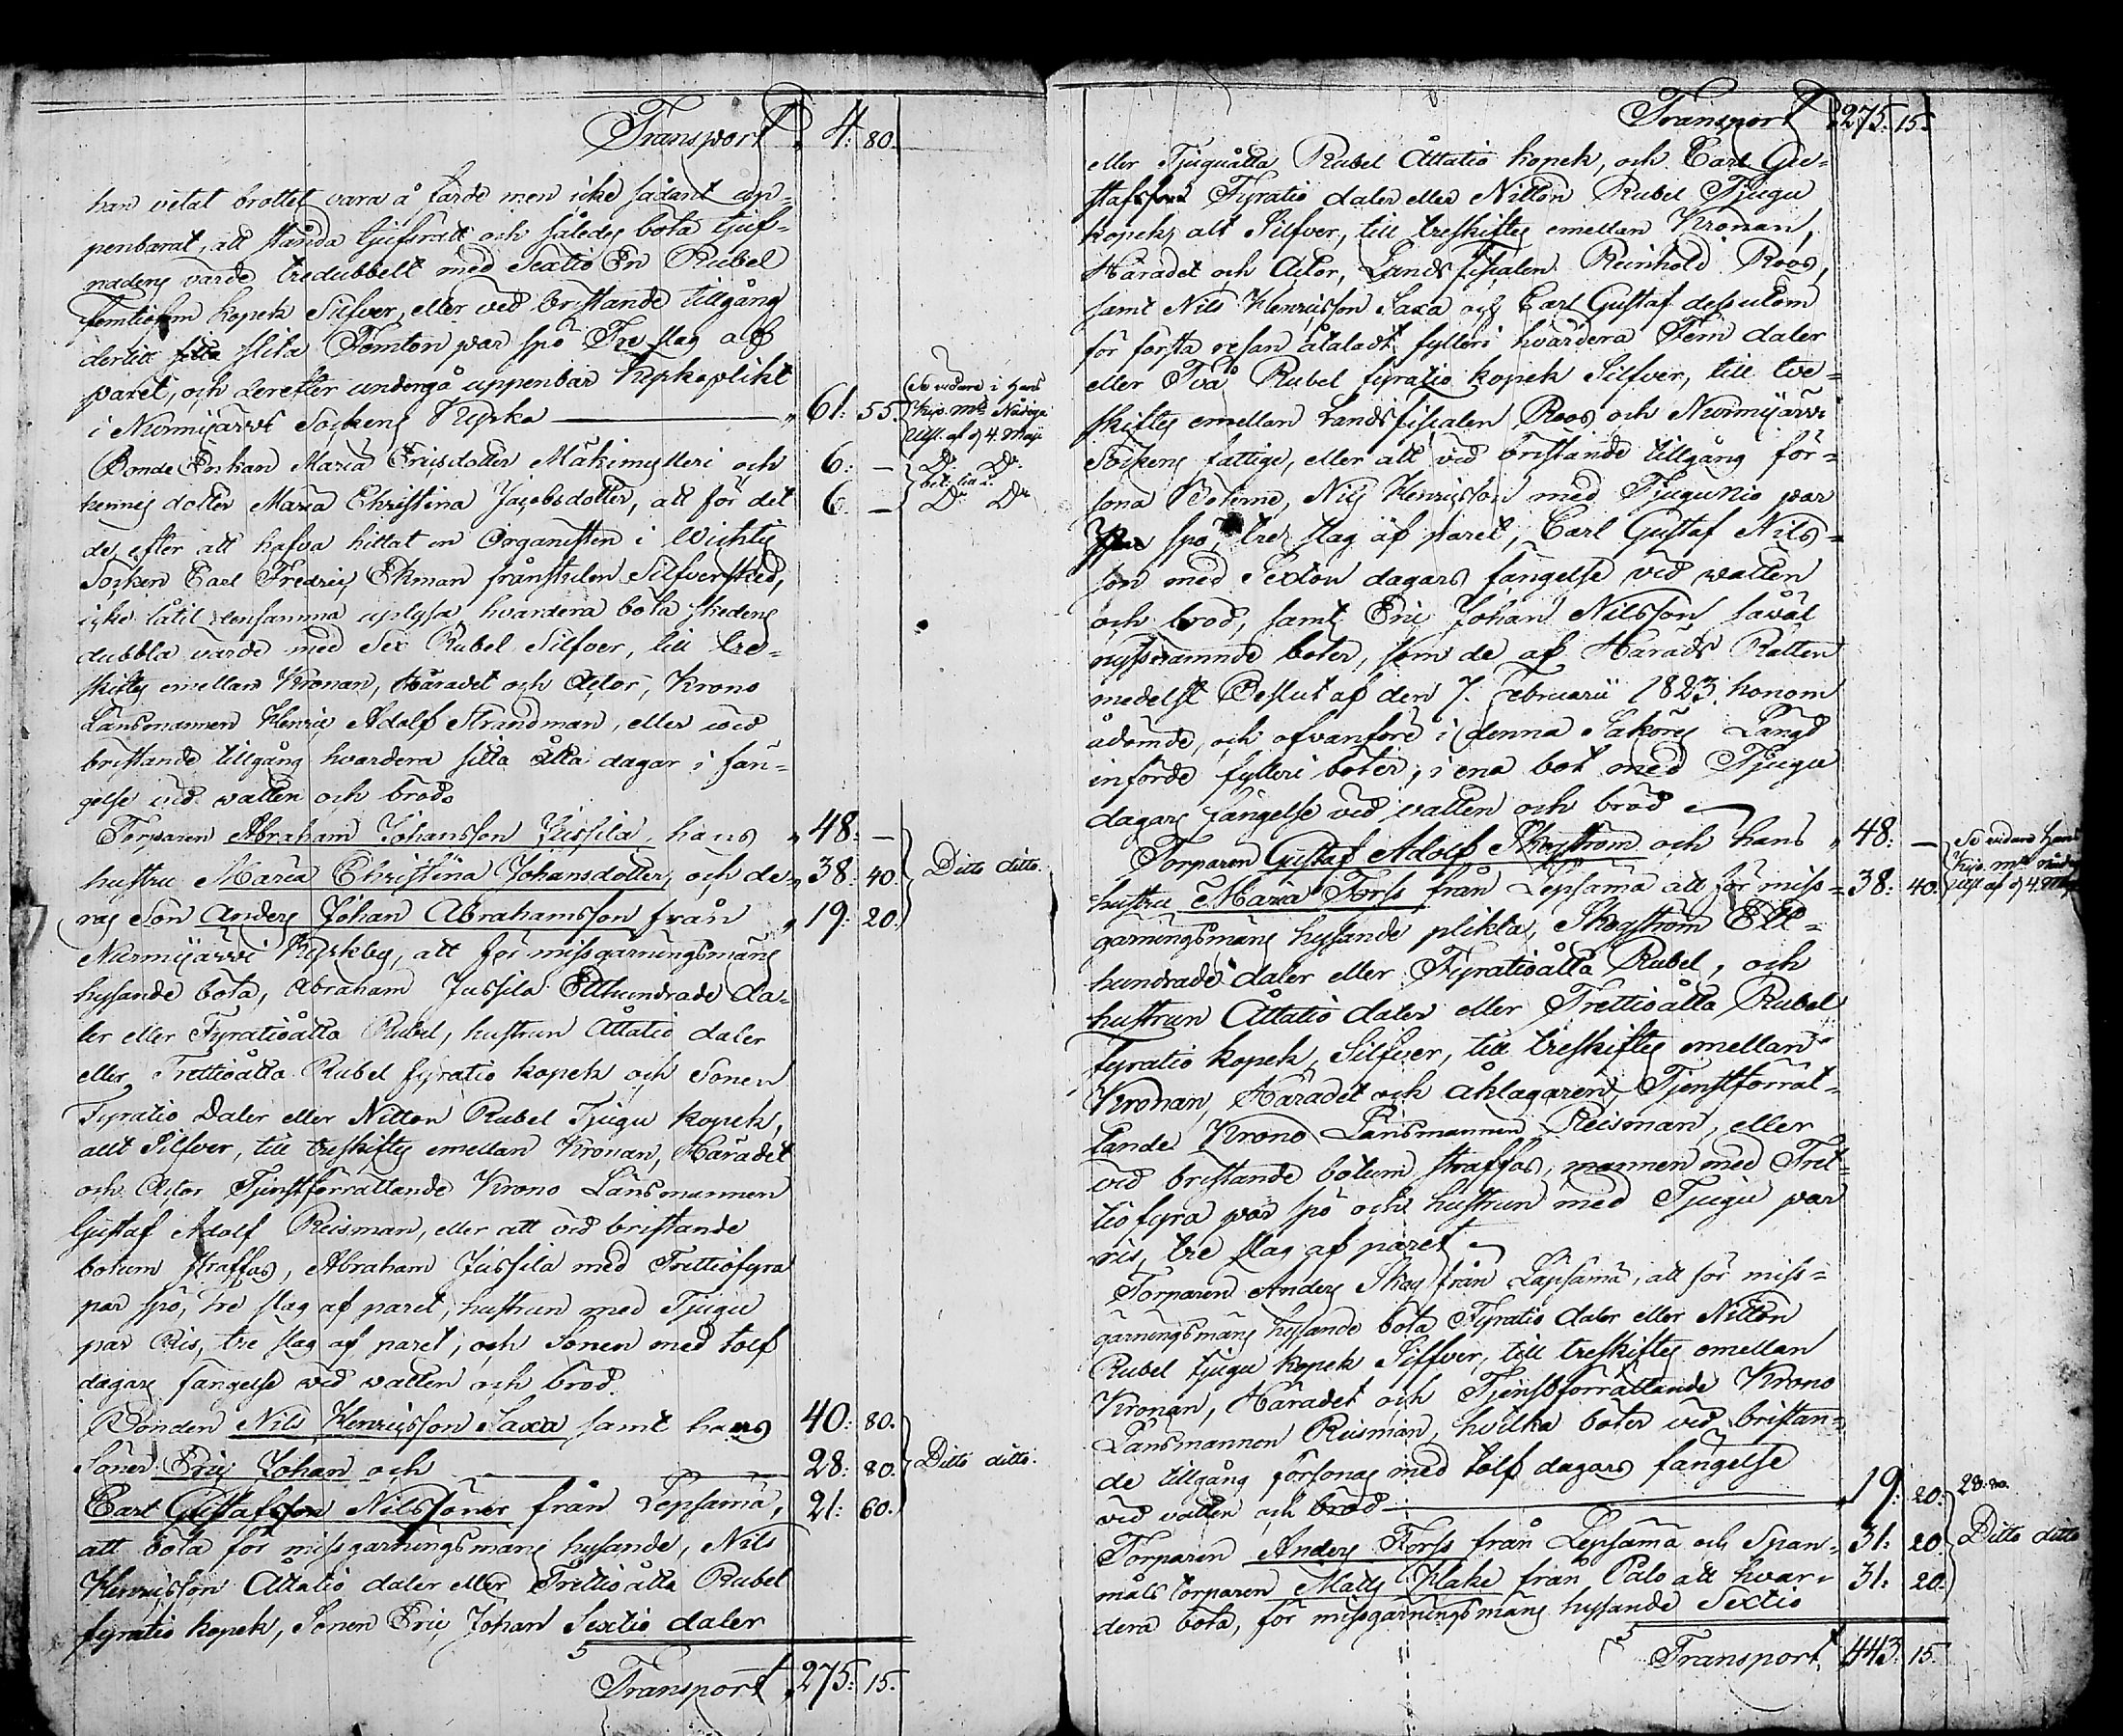 Transport 4: 80.
han vetat brottet vara å färde men icke sådant up-
penbarat, att stånda tjufsrätt och således böta tjuf-
nadens värde tredubbelt med Sextio En Rubel
femtiofem kopek Silfver, eller vid bristande tillgång
dertill slita Femton par spö Tre slag af
paret, och derefter undergå uppenbar Kyrkoplikt
i Nurmijärvi Sockens Kyrka — 61: 55. Se vidare i Hans Kejs. Mts Nådiga Utsl. af d. 4. Maji
Bonde Enkan Maria Ericsdotter Mäkimylleri och 6: — Do Do
hennes dotter Maria Christina Jacobsdotter, att för det 6 — Do Do
de, efter att hafva hittat en Organisten i Wichtis
Socken Carl Fredric Ekman frånstulen Silfversked,
icke låtit densamma uplysa, hvardera böta skedens
dubbla värde med Sex Rubel Silfver, till tre-
skiftes emellan Kronan, Häradet och Actor, Krono
Länsmannen Henric Adolf Strandman, eller wid
bristande tillgång hvardera sitta Åtta dagar i fän-
gelse vid vatten och bröd.
Torparen Abraham Johansson Jussila, hans 48: —
hustru Maria Christina Johansdotter, och de- 38: 40. Ditto ditto.
ras Son Anders Johan Abrahamsson från 19: 20.
Nurmijärvi Kyrkby, att för missgärningsmäns
hysande böta, Abraham Jussila Etthundrade da-
ler eller Fyratioåtta Rubel, hustrun Åttatio daler
eller Trettioåtta Rubel fyratio kopek och Sonen
Fyratio Daler eller Nitton Rubel Tjugu kopek,
allt Silfver, till treskiftes emellan Kronan, Häradet
och Actor Tjenstförrättande Krono Länsmannen
Gustaf Adolf Reisman, eller att vid bristande
botum straffas, Abraham Jussila med Trettiofyra
par spö, tre slag af paret, hustrun med Tjugu
par Ris, tre slag af paret, och Sonen med tolf
dagars fängelse vid vatten och bröd.
Bonden Nils Henricsson Saxa samt hans 40: 80.
Söner Eric Johan och — 28: 80. Ditto ditto.
Carl Gustafsson Nilssöner från Lepsämä, 21: 60.
att böta för missgärningsmäns hysande, Nils
Henricsson Åttatio daler eller Trettioåtta Rubel
fyratio kopek, Sonen Eric Johan Sextio daler
Transport 275: 15.
Transport 275. 15.
eller Tjuguåtta Rubel Åttatio kopek, och Carl Gu-
stafsson Fyratio daler eller Nitton Rubel Tjugu
kopek, alt Silfver, till treskiftes emellan Kronan,
Häradet och Actor, Landsfiscalen Reinhold Roos,
samt Nils Henricsson Saxa och Carl Gustaf dessutom
för första resan åtaladt fylleri hvardera Fem daler
eller Två Rubel fyratio kopek Silfver, till tve-
skiftes emellan Landsfiscalen Roos och Nurmijärvi
Sockens fattige, eller att vid bristande tillgång för-
sona Böterne, Nils Henricsson med Tjugunio par
spö, tre slag af paret, Carl Gustaf Nils-
son med Sexton dagars fängelse vid vatten
och bröd, samt Eric Johan Nilsson såväl
nyssnämnde böter, som de af Härads Rätten
medelst Beslut af den 7. Februarii 1823 honom
ådömde, och ofvanföre i denna Saköres Längd
införde fylleri böter, i ena bot med Tjugu
dagars fängelse vid vatten och bröd
Torparen Gustaf Adolf Skogström och hans 48: — Se vidare Hans
hustru Maria Forss från Lepsämä att för miss- 38: 40. Kejs. Mts nådiga Utsl af d 4. Maji
gärningsmäns hysande plikta, Skogström Ett-
hundrade daler eller Fyratioåtta Rubel, och
hustrun Åttatio daler eller Trettioåtta Rubel
fyratio kopek, Silfver, till treskiftes emellan
Kronan, Häradet och åklagaren, Tjenstförrät-
tande Krono Länsmannen Reisman, eller
vid bristande botum straffas, mannen med Tret-
tiofyra par spö och hustrun med Tjugu par
ris, tre slag af paret
Torparen Anders Skog från Lepsämä, att för miss-
gärningsmäns hysande böta Fyratio daler eller Nitton
Rubel tjugu kopek Silfver, till treskiftes emellan
Kronan, Häradet och Tjenstförrättande Krono
Länsmannen Reisman, hvilka böter vid bristan-
de tillgång försonas med tolf dagars fängelse
vid vatten och bröd — 19: 20.
Torparen Anders Forss från Lepsämä och Span- 31: 20. Ditto ditto
måls torparen Matts Flake från Palo att hvar- 31: 20.
dera böta, för missgärningsmäns hysande Sextio
Transport 443. 15.